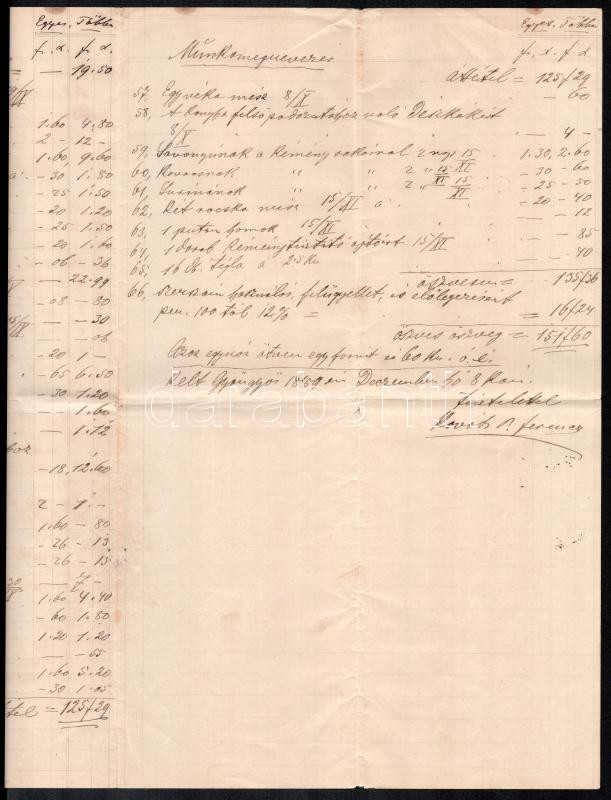 Egyes. Többes
f. x. f. x.
— 19.50
1.60 4.80
2 — 12 —
1.60, 9.60
— 30 1.80
— 25 1.50
— 20 1.20
— 25 1.50
— 20 1.00
— 06 — 36
— 22.99
— 08 — 80
— — 30
— 06
— 20 1 —
— 65 6.50
— 30 1.20
— 1.60
— 1.12
— 18, 12.60
2 — 1. —
1.60 — 80
— 26 — 13
— 26 — 13
1.60 4.40
— 60 1.80
1.20 1.20
— — 55
1.60 5.20
— 30 1.05
= 125/29
Egyes. Többes
f. x. f. x.
Munkamegnevezés
Áttétel = 125/29
57, Egy véka mész 8/X — 60
58, A Konyha felső padozatához való Deszkákért
8/X — 4 —
59, a Kémény rakásnál 2 nap 15/XI 1.30, 2.60
60, Kovacsnak " " 2 " 15/XI — 30 — 60
61, " " 2 " 15/XI — 25 — 50
62, Két rocska mész 15/XI a — 20 — 40
63, 1 puton homok 15/XI — 12
64, 1 darab Kéménytisztitó ajtóért 15/XI — 85
65, 16 db. tégla a 2.5 Kr — 40
összvesen = 135/36
66, szerszám használás, felügyellet, és előlegezésért
100 tól 12% = = 16/24
összves öszveg = 151/60
Azaz egyszáz ötven egy forint és 60 Kr. o. é.
Kelt Gyöngyös 1889 én Deczember hó 8 kán.
tisztelettel
Kováts P. Ferencz
darabanth